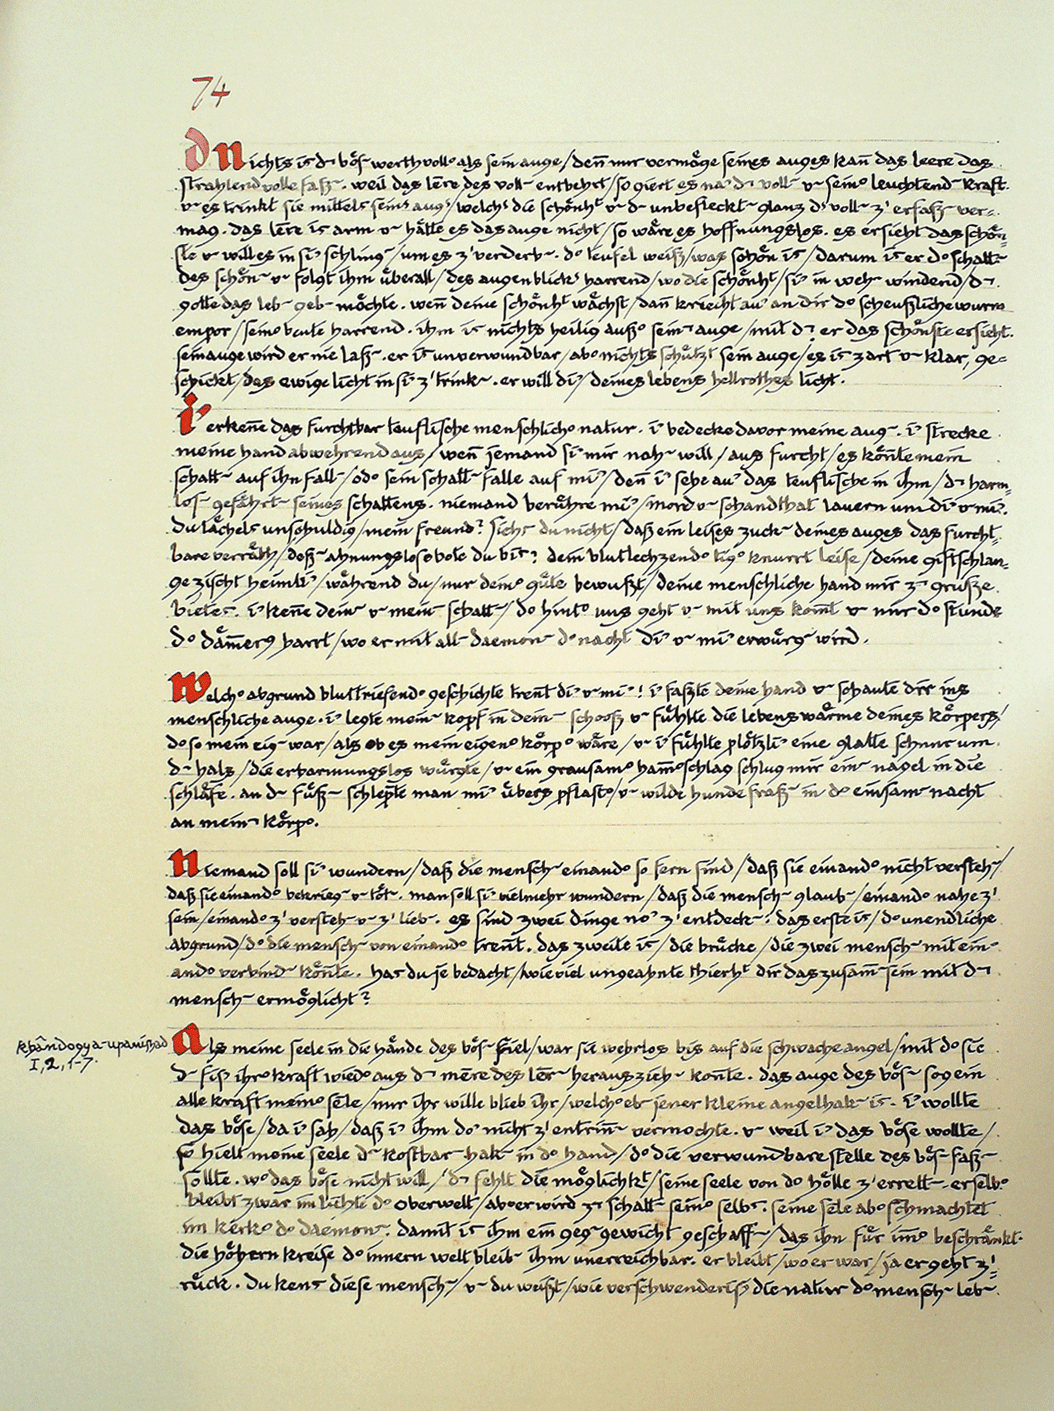 74
dNichts is d¬ bös¬ werthvoll° als sein auge/den̄ nur vermöge seines auges kan̄ das leere das
strahlend volle fass¬. weil das lēre des voll¬ entbehrt/so giert es na’ d¬ voll¬ u¬ sein° leuchtend¬ kraft.
u¬ es trinkt sie mittels sein’ aug’/welch’ die schönh’t u¬ d¬ unbefleckt¬ glanz d’ voll¬ z’ erfass¬ ver=
mag. das lēre is arm u¬ hätte es das auge nicht/so wäre es hoffnungslos. es ersieht das schön=
ste u¬ will es in si’ schling¬/um es z’ verderb¬. d° teufel weiß/was schön is/darum is er d° schatt¬
des schön¬ u¬ folgt ihm überall/des augenblick’ harrend/wo die schönh’t/si’ in weh¬ windend/d¬
gotte das leb¬ geb¬ möchte. wen̄ deine schönh’t wächst/dan̄ kriecht au’ an dir d° scheußliche wurm
empor/sein° beute harrend. ihm is nichts heilig auß° sein¬ auge/mit d¬ er das schönste ersieht.
sein auge wird er nie lass¬. er is unverwundbar/ab° nichts schützt sein auge/es is zart u¬ klar, ge=
schickt/das ewige licht in si’ z’ trink¬. er will di’/deines lebens hellrothes licht.
i’ erken̄e das furchtbar teuflische menschlich° natur. i’ bedecke davor meine aug¬. i’ strecke
meine hand abwehrend aus/wen̄ jemand si’ mir nah¬ will/aus furcht/es kön̄te mein
schatt¬ auf ihn fall¬/od° sein schatt¬ falle auf mi’/den̄ i’ sehe au’ das teuflische in ihm/d¬ harm=
los¬ gefährt¬ seines schattens. niemand berühre mi’/mord u¬ schandthat lauern um di’ u¬ mi’.
du lächels unschuldig/mein freund? siehs du nicht/daß ein leises zuck¬ deines auges das furcht=
bare verräth/dess¬ ahnungslos° bote du bis? dein blutlechzend° tig° knurrt leise/deine giftschlan=
ge zischt heimli’/während du/nur dein° güte bewußt/deine menschliche hand mir z’ gruße
bietes. i’ ken̄e dein¬ u¬ mein¬ schatt¬/d° hint° uns geht u¬ mit uns kom̄t u¬ nur d° stunde
d° däm̄er’g harrt/wo er mit all¬ daemon¬ d° nacht di’ u¬ mi’ erwürg¬ wird.
Welch° abgrund bluttriefend° geschichte tren̄t di’ u¬ mi’! i’ faßte deine hand u¬ schaute dir ins
menschliche auge. i’ legte mein¬ kopf in dein¬ schooß u¬ fühlte die lebenswärme deines körpers/
d° so mein eig¬ war/als ob es mein eigen° körp° wäre/u¬ i’ fühlte plötzli’ eine glatte schnur um
d¬ hals/die erbarmungslos würgte/u¬ ein grausam° ham̄°schlag schlug mir ein¬ nagel in die
schläfe. an d¬ füß¬ schleppte man mi’ übers pflast°/u¬ wilde hunde fraß¬ in d° einsam¬ nacht
an mein¬ körp°.
Niemand soll si’ wundern/daß die mensch¬ einand° so fern sind/daß sie einand° nicht versteh¬/
daß sie einand° bekrieg¬ u¬ töt¬. man soll si’ vielmehr wundern/daß die mensch¬ glaub¬/einand° nahe z’
sein/einand° z’ versteh¬ u¬ z’ lieb¬. es sind zwei dinge no’ z’ entdeck¬. das erste is/d° unendliche
abgrund/d° die mensch¬ von einand° tren̄t. das zweite is/die brücke/die zwei mensch¬ mit ein=
and° verbind¬ kön̄te. has du je bedacht/wie viel ungeahnte thierh’t dir das zusam̄¬sein mit d¬
mensch¬ ermöglicht?
Khândogya-upanishad
I, 2, 1-7.
Als meine seele in die hände des bös¬ fiel/war sie wehrlos bis auf die schwache angel/mit d° sie
d¬ fisch ihr° kraft wied° aus d¬ mēre des lēr¬ herauszieh¬ kon̄te. das auge des bös¬ sog ein
alle kraft mein° sēle/nur ihr wille blieb ihr/welch° eb¬ jener kleine angelhak¬ is. i’ wollte
das böse/da i’ sah/daß i’ ihm do’ nicht z’ entrin̄¬ vermochte. u¬ weil i’ das böse wollte/
so hielt meine seele d¬ kostbar¬ hak¬ in d° hand/d° die verwundbare stelle des bös¬ fass¬
sollte. wo das böse nicht will/d¬ fehlt die möglichk’t/seine seele von d° hölle z’ errett¬. er selb°
bleibt zwar im lichte d° oberwelt/ab° er wird z’ schatt¬ sein° selbs. seine sēle ab° schmachtet
im kerk° d° daemon¬. damit is ihm ein geg¬gewicht geschaff¬/das ihn für im̄° beschränkt.
die höhern kreise d° innern welt bleib¬ ihm unerreichbar. er bleibt/wo er war/ja er geht z’=
rück. du kens diese mensch¬/u¬ du weißt/wie verschwenderis’ die natur d° mensch¬ leb¬